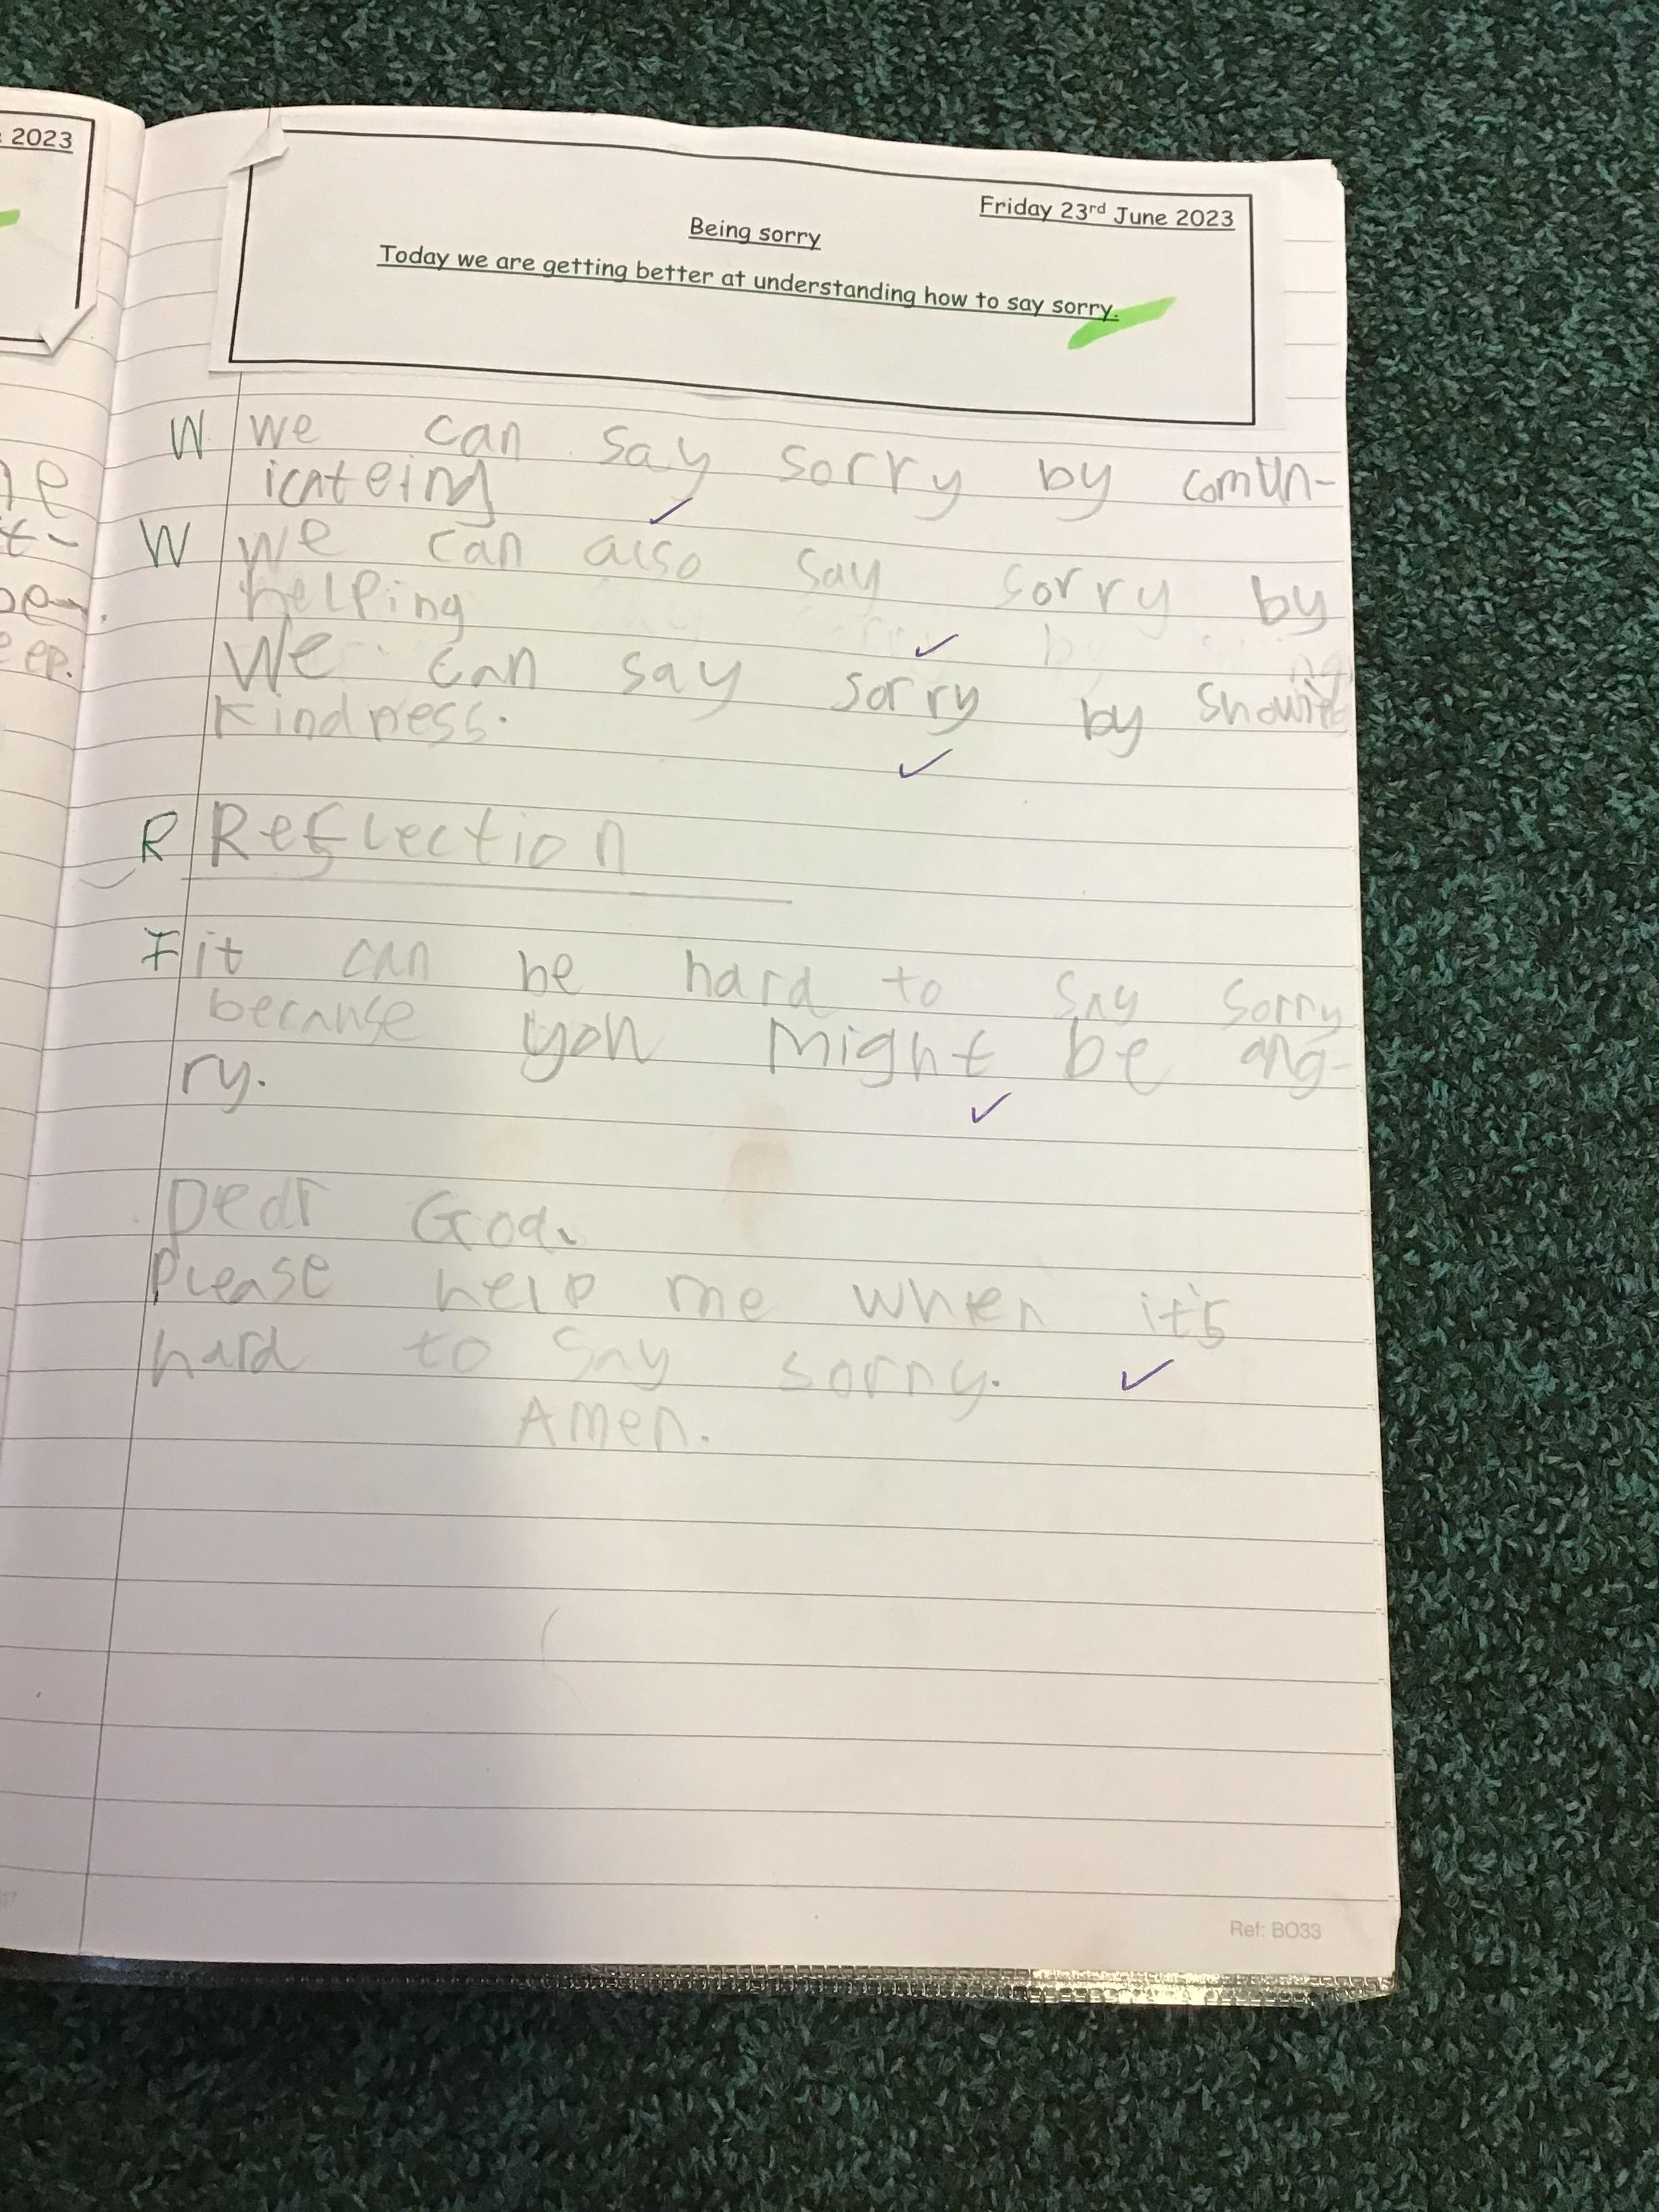 2023
Friday 23rd June 2023
Being sorry
Today we are getting better at understanding how to say sorry.
W we can say sorry by comun-
icateing
W we can also say sorry by
helping
We can say sorry by showing
kindness.
R Reflection
I it can be hard to say sorry
because you might be ang-
ry.
Dear God,
Please help me when it's
hard to say sorry.
Amen.
Ref: BO33